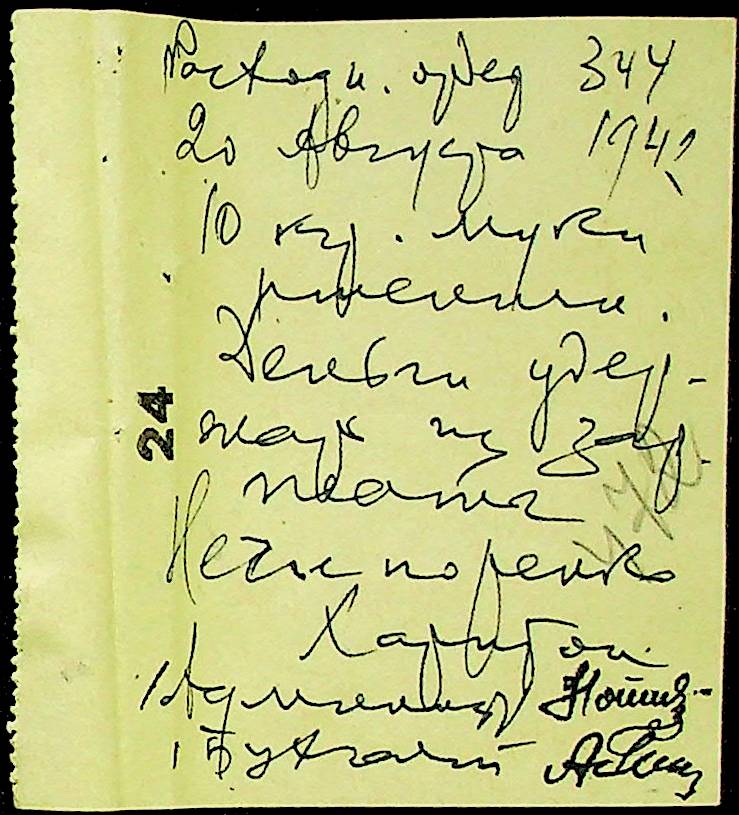 Расходн. ордер 344
20 Августа 1942
10 кг. муки
ржаной.
Деньги удер-
жать из зар.
платы
Нечипоренко
Харитон.
Администр
Бухгалтер
24